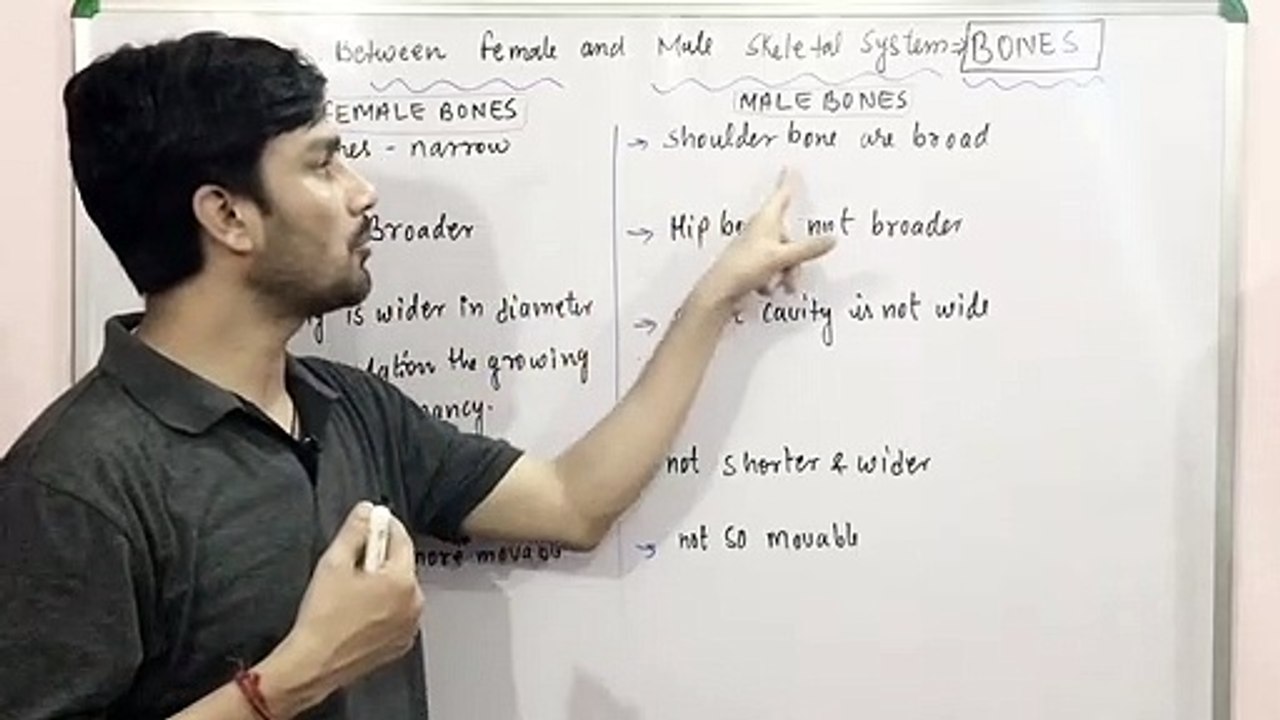 Between female and Male Skeletal System⇒ BONES
FEMALE BONES
narrow
Broader
is wider in diameter
the growing
more movable
MALE BONES
→ shoulder bone are broad
→ Hip not broader
→ cavity is not wide
not shorter & wider
→ not so movable